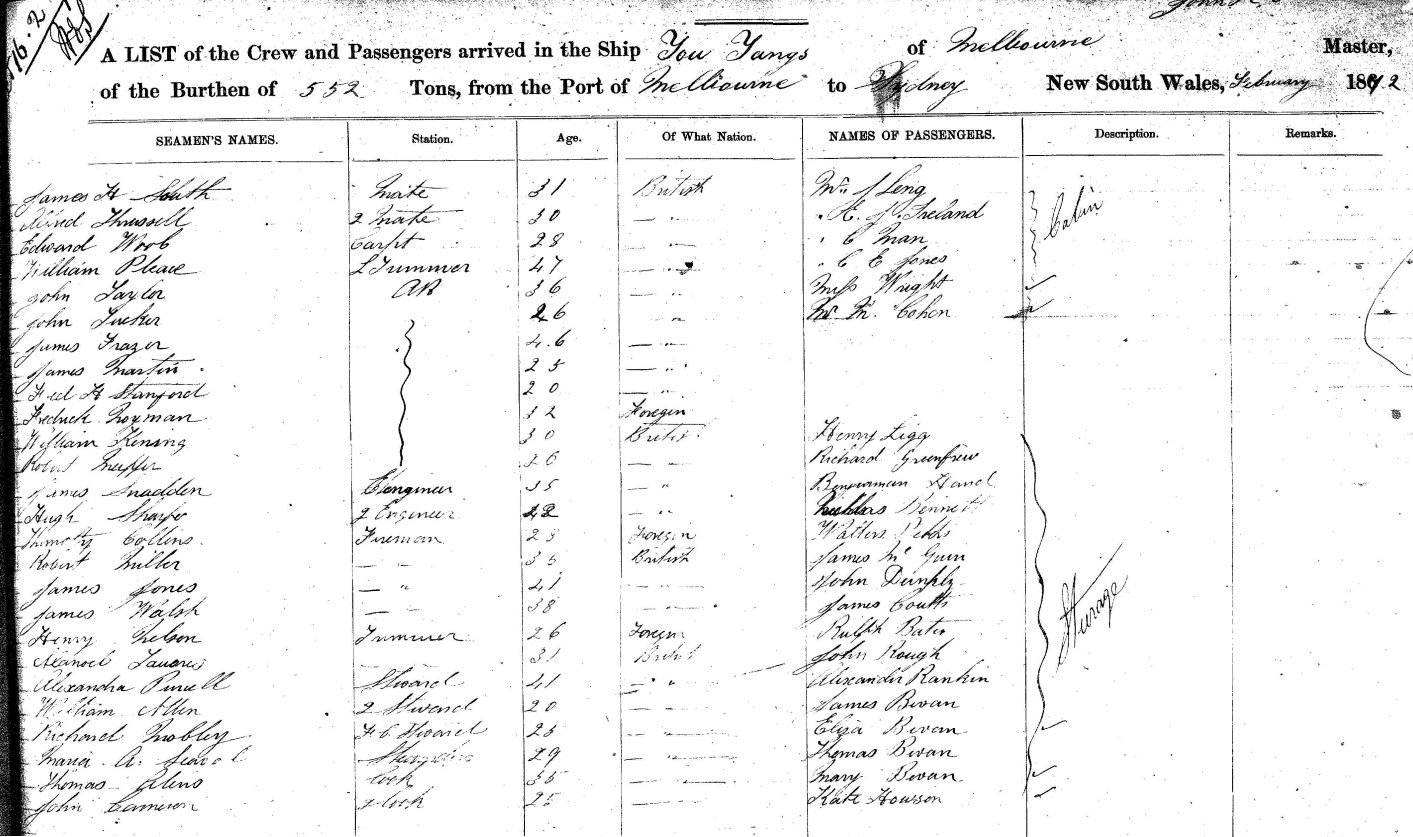 A LIST of the Crew and Passengers arrived in the Ship You Yangs of Melbourne Master,
of the Burthen of 552 Tons, from the Port of Melbourne to Sydney New South Wales, February 1872
SEAMEN'S NAMES. Station. Age. Of What Nation. NAMES OF PASSENGERS. Description. Remarks.
James H South Mate 31 British Mr J Leng
Alfred Thrussell 2 Mate 30 — " " H. J. Ireland Cabin
Edward Woob Carpt 28 — " " C Man
William Pleace L Trimmer 47 — " " C E Jones
John Taylor AB 36 — " Miss Wright
John Tucker 26 — " Mr M. Cohen
James Frazer 46 — "
James Martin 25 — "
Fred H Stanford 20 — "
Fredrick 32 Foregin
William Kening 30 Britis Henry Ligg
Robert 26 — " Richard Greenfrew
James Snadden Engineer 35 — " Hand
Hugh Sharp 2 Engineer 42 — " Bennett
Thimoty Collins Fireman 28 Foregin Walters
Robert Miller — — 35 British James Mc
James Jones — " 41 — — John Dunphy
James Walsh — — 38 — — James Coutts Sturage
Henry Nelson Trimmer 26 Foregin Ralph Bates
Manoel Tavares — 31 British John Rough
Alexandra Purcell Stward 41 — " Alexander Rankin
William Allen 2 Stward 20 — — James Bevan
Richard Mobley F C Stward 25 — — Eliza Bevan
Maria A. 29 — — Thomas Bevan
Thomas Cook 35 — — Mary Bevan
John Cameron 2 Cook 25 — — Kate Howson